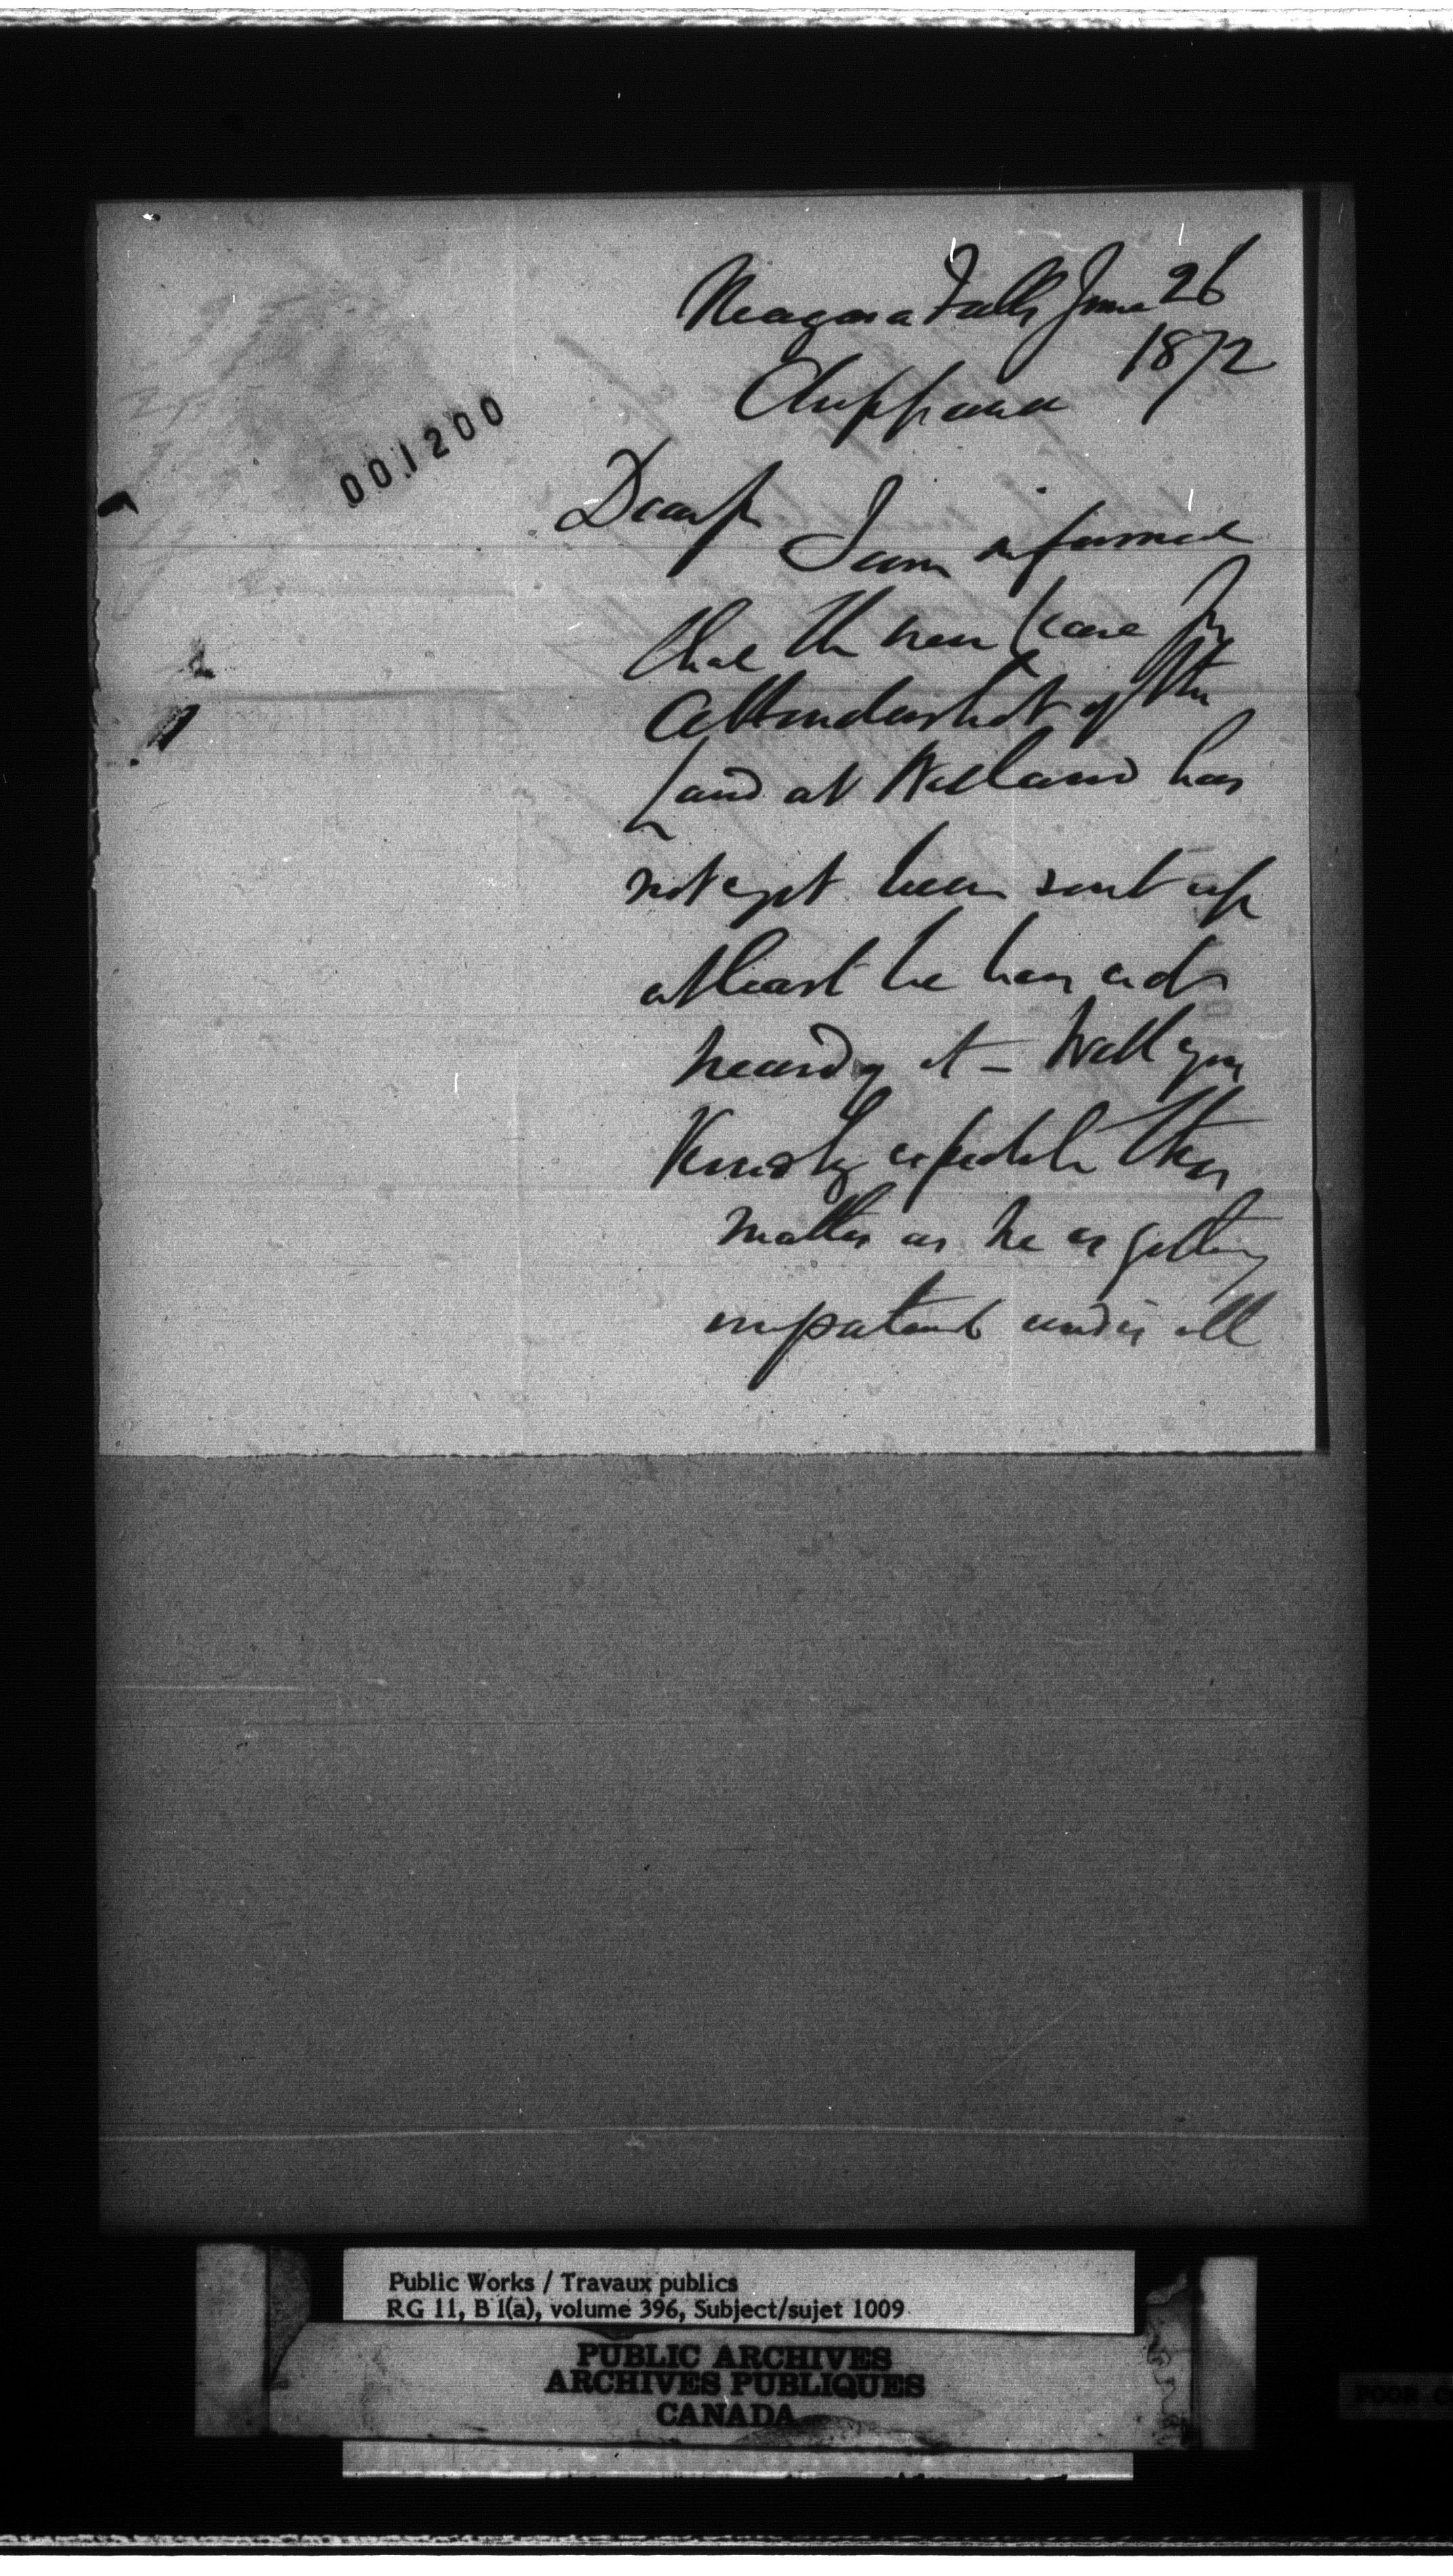 Niagara Falls June 26
1872
Chippawa
001200
Dear
I am informed
that the new lease for
of the
Land at Welland has
not yet been sent up
at least he has not
heard of it – Will you
Kindly expedite this
matter as he is getting
impatient under all
Public Works / Travaux publics
RG 11, B 1(a), volume 396, Subject/sujet 1009
PUBLIC ARCHIVES
ARCHIVES PUBLIQUES
CANADA
POOR